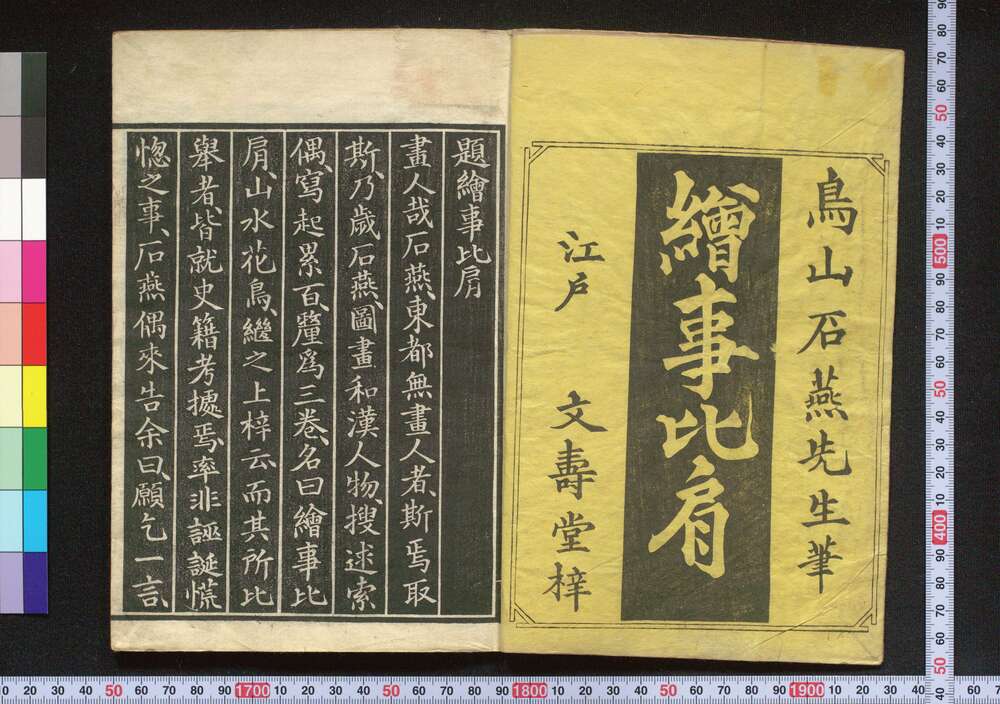 鳥山石燕先生筆
繪事比肩
江戸 文壽堂梓
題繪事比肩
畫人哉石燕、東都無畫人者、斯焉取
斯、乃歳石燕、圖畫和漢人物、搜逑索
偶、寫起累百、釐爲三卷、名曰繪事比
肩、山水花鳥、繼之上梓云、而其所比
舉者、皆就史籍考據焉、率非誣誕慌
惚之事、石燕偶來告余曰、願乞一言、